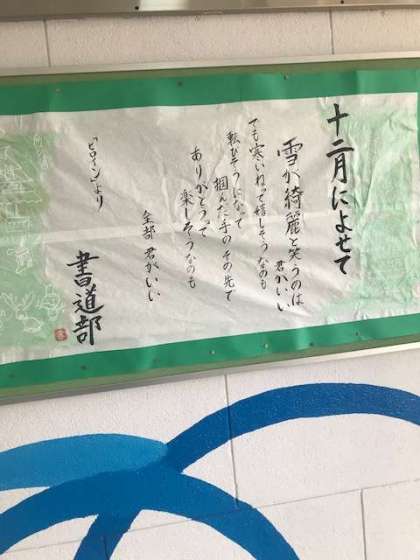 十二月によせて
雪が綺麗と笑うのは
君がいい
でも寒いねって嬉しそうなのも
転びそうになって
掴んだ手のその先で
ありがとうって
楽しそうなのも
全部君がいい
「ヒロイン」より
書道部